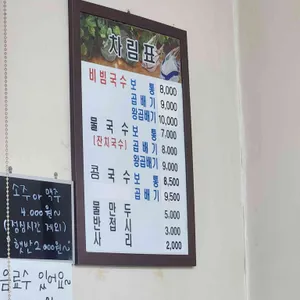 차림표
비빔국수 보통 8,000
곱배기 9,000
왕곱배기 10,000
물국수 보통 7,000
(잔치국수) 곱배기 8,000
왕곱배기 9,000
콩국수 보통 8,500
곱배기 9,500
물만두 5.000
반접시 3.000
사리 2,000
소주 or 맥주
4.000원~
(점심시간 제외)
햇반 2000원~
음료수 있어요~